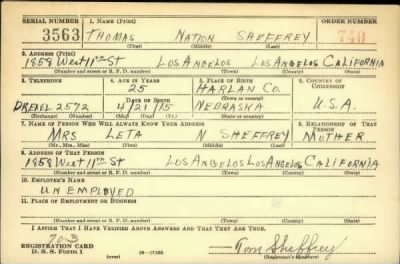 SERIAL NUMBER 1. NAME (Print) ORDER NUMBER
3563 THOMAS NATION SHEFFREY 740
(First) (Middle) (Last)
2. ADDRESS (Print)
1858 West 11th ST LOS ANGELOS LOS ANGELOS CALIFORNIA
(Number and street or R. F. D. number) (Town) (County) (State)
3. TELEPHONE 4. AGE IN YEARS 5. PLACE OF BIRTH 6. COUNTRY OF CITIZENSHIP
25 HARLAN CO.
DREXEL 2572 DATE OF BIRTH
4/21/15 NEBRASKA U.S.A.
(Exchange) (Number) (Mo.) (Day) (Yr.) (State or country)
7. NAME OF PERSON WHO WILL ALWAYS KNOW YOUR ADDRESS 8. RELATIONSHIP OF THAT PERSON
MRS LETA N SHEFFREY MOTHER
(Mr., Mrs., Miss) (First) (Middle) (Last)
9. ADDRESS OF THAT PERSON
1858 West 11th ST LOS ANGELOS LOS ANGELOS CALIFORNIA
(Number and street or R. F. D. number) (Town) (County) (State)
10. EMPLOYER'S NAME
UNEMPLOYED
11. PLACE OF EMPLOYMENT OR BUSINESS
(Number and street or R. F. D. number) (Town) (County) (State)
I AFFIRM THAT I HAVE VERIFIED ABOVE ANSWERS AND THAT THEY ARE TRUE.
703
REGISTRATION CARD
D. S. S. Form 1 Tom Sheffrey
(Registrant's signature)